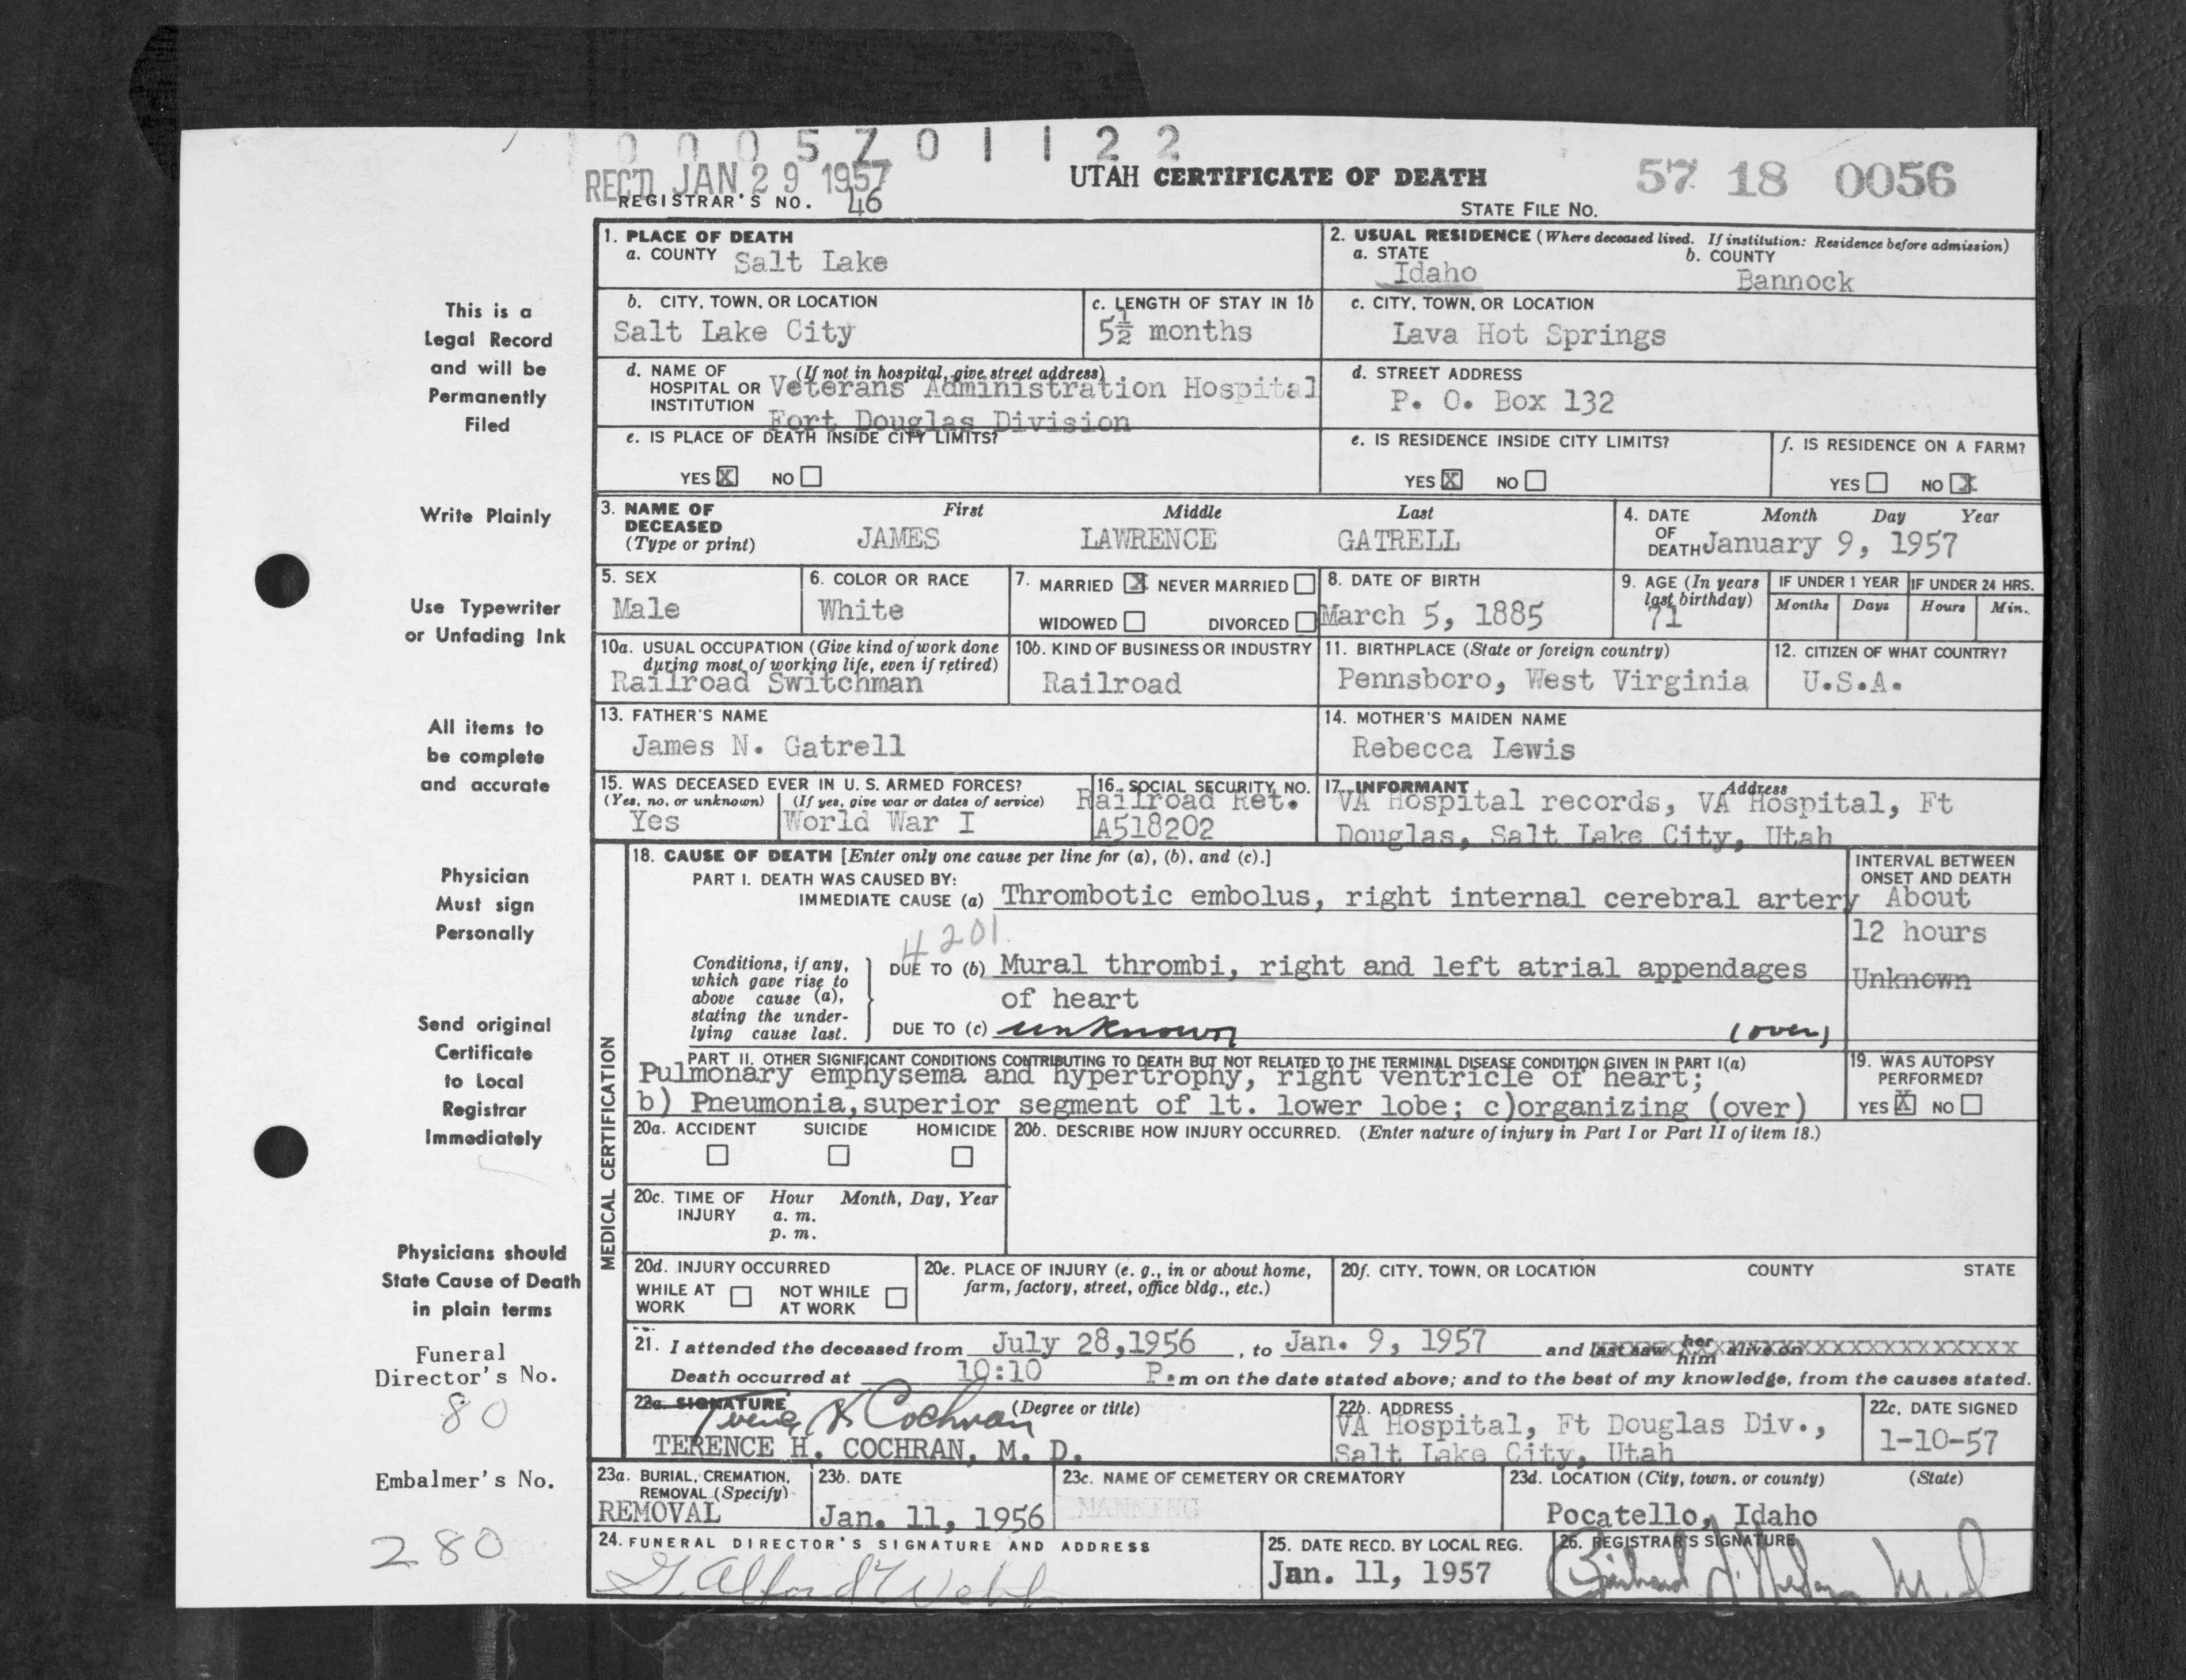 0 0 0 5 7 0 1 1 2 2
REC'D JAN 29 1957
REGISTRAR'S NO. 46
UTAH CERTIFICATE OF DEATH
57 18 0056
STATE FILE NO.
This is a
Legal Record
and will be
Permanently
Filed
Write Plainly
Use Typewriter
or Unfading Ink
All items to
be complete
and accurate
Physician
Must sign
Personally
Send original
Certificate
to Local
Registrar
Immediately
Physicians should
State Cause of Death
in plain terms
Funeral
Director's No.
80
Embalmer's No.
280
1. PLACE OF DEATH
a. COUNTY Salt Lake
2. USUAL RESIDENCE (Where deceased lived. If institution: Residence before admission)
a. STATE Idaho
b. COUNTY Bannock
b. CITY, TOWN, OR LOCATION
Salt Lake City
c. LENGTH OF STAY IN 1b
5½ months
c. CITY, TOWN, OR LOCATION
Lava Hot Springs
d. NAME OF HOSPITAL OR INSTITUTION (If not in hospital, give street address)
Veterans Administration Hospital
Fort Douglas Division
d. STREET ADDRESS
P. O. Box 132
e. IS PLACE OF DEATH INSIDE CITY LIMITS?
YES X NO
e. IS RESIDENCE INSIDE CITY LIMITS?
YES X NO
f. IS RESIDENCE ON A FARM?
YES NO X
3. NAME OF DECEASED (Type or print)
First Middle Last
JAMES LAWRENCE GATRELL
4. DATE OF DEATH Month Day Year
January 9, 1957
5. SEX
Male
6. COLOR OR RACE
White
7. MARRIED X NEVER MARRIED
WIDOWED DIVORCED
8. DATE OF BIRTH
March 5, 1885
9. AGE (In years last birthday)
71
IF UNDER 1 YEAR
Months Days
IF UNDER 24 HRS.
Hours Min.
10a. USUAL OCCUPATION (Give kind of work done during most of working life, even if retired)
Railroad Switchman
10b. KIND OF BUSINESS OR INDUSTRY
Railroad
11. BIRTHPLACE (State or foreign country)
Pennsboro, West Virginia
12. CITIZEN OF WHAT COUNTRY?
U.S.A.
13. FATHER'S NAME
James N. Gatrell
14. MOTHER'S MAIDEN NAME
Rebecca Lewis
15. WAS DECEASED EVER IN U. S. ARMED FORCES?
(Yes, no, or unknown) (If yes, give war or dates of service)
Yes World War I
16. SOCIAL SECURITY NO.
Railroad Ret.
A518202
17. INFORMANT Address
VA Hospital records, VA Hospital, Ft
Douglas, Salt Lake City, Utah
MEDICAL CERTIFICATION
18. CAUSE OF DEATH [Enter only one cause per line for (a), (b), and (c).]
PART I. DEATH WAS CAUSED BY:
IMMEDIATE CAUSE (a) Thrombotic embolus, right internal cerebral artery
INTERVAL BETWEEN ONSET AND DEATH
About
12 hours
4201
Conditions, if any, which gave rise to above cause (a), stating the underlying cause last.
DUE TO (b) Mural thrombi, right and left atrial appendages
of heart
Unknown
DUE TO (c) unknown (over)
PART II. OTHER SIGNIFICANT CONDITIONS CONTRIBUTING TO DEATH BUT NOT RELATED TO THE TERMINAL DISEASE CONDITION GIVEN IN PART I(a)
Pulmonary emphysema and hypertrophy, right ventricle of heart;
b) Pneumonia, superior segment of lt. lower lobe; c)organizing (over)
19. WAS AUTOPSY PERFORMED?
YES X NO
20a. ACCIDENT SUICIDE HOMICIDE
20b. DESCRIBE HOW INJURY OCCURRED. (Enter nature of injury in Part I or Part II of item 18.)
20c. TIME OF INJURY Hour Month, Day, Year
a. m.
p. m.
20d. INJURY OCCURRED
WHILE AT WORK NOT WHILE AT WORK
20e. PLACE OF INJURY (e. g., in or about home, farm, factory, street, office bldg., etc.)
20f. CITY, TOWN, OR LOCATION COUNTY STATE
21. I attended the deceased from July 28,1956, to Jan. 9, 1957 and last saw her him alive on
Death occurred at 10:10 P.m on the date stated above; and to the best of my knowledge, from the causes stated.
22a. SIGNATURE (Degree or title)
Terence H Cochran
TERENCE H. COCHRAN, M. D.
22b. ADDRESS
VA Hospital, Ft Douglas Div.,
Salt Lake City, Utah
22c. DATE SIGNED
1-10-57
23a. BURIAL, CREMATION, REMOVAL (Specify)
REMOVAL
23b. DATE
Jan. 11, 1956
23c. NAME OF CEMETERY OR CREMATORY
MANNING
23d. LOCATION (City, town, or county) (State)
Pocatello, Idaho
24. FUNERAL DIRECTOR'S SIGNATURE AND ADDRESS
G. Alford Webb
25. DATE RECD. BY LOCAL REG.
Jan. 11, 1957
26. REGISTRAR'S SIGNATURE